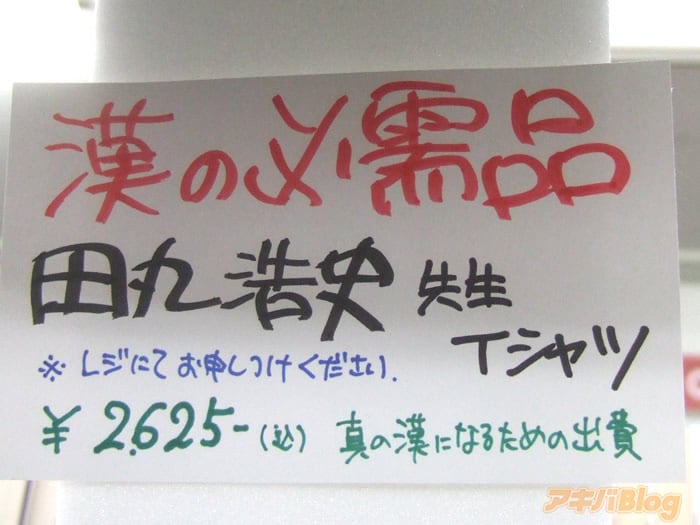 漢の必需品
田丸浩史 先生
Tシャツ
※ レジにてお申しつけください.
¥2,625-(込) 真の漢になるための出費
アキバBlog